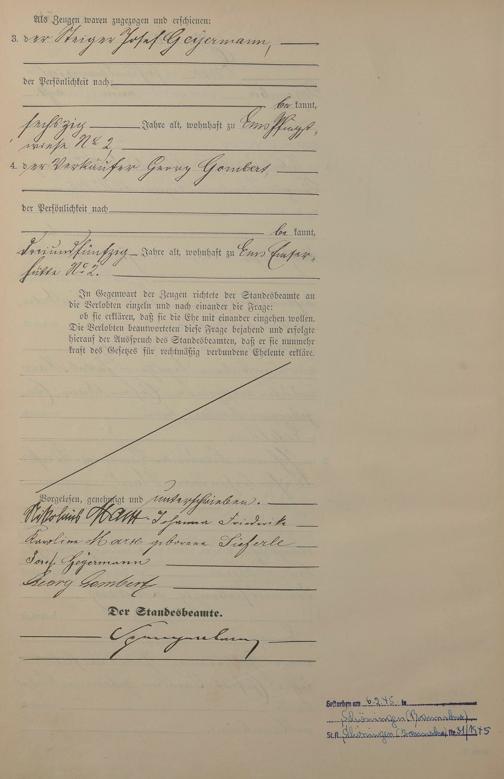 Als Zeugen waren zugezogen und erschienen:
3. der Steiger Josef Geyermann,
der Persönlichkeit nach
be kannt,
sechszig Jahre alt, wohnhaft zu Ems
wiese No 2
4. der Verkäufer Georg Gombert,
der Persönlichkeit nach
be kannt,
dreiundfünfzig Jahre alt, wohnhaft zu Ems Emser-
hütte No 2.
In Gegenwart der Zeugen richtete der Standesbeamte an
die Verlobten einzeln und nach einander die Frage:
ob sie erklären, daß sie die Ehe mit einander eingehen wollen.
Die Verlobten beantworteten diese Frage bejahend und erfolgte
hierauf der Ausspruch des Standesbeamten, daß er sie nunmehr
kraft des Gesetzes für rechtmäßig verbundene Eheleute erkläre.
Vorgelesen, genehmigt und unterschrieben.
Nikolaus Marx Johanna Friederike
Karoline Marx geborene Sieferle
Josef Geyermann
Georg Gombert
Der Standesbeamte.
Gestorben am 6.2.45 in
Schöningen (Braunschw.)
St.A. Schöningen (Braunschw.) Nr. 31/1945